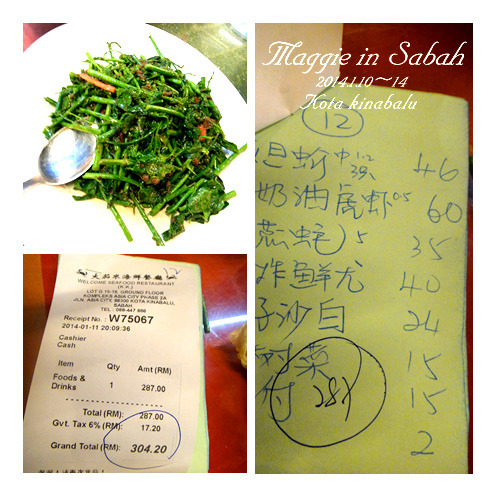 Maggie in Sabah
2014.1.10~14
Kota kinabalu
12
46
奶油虎虾 0.5 60
蒸蚝 5 35
炸鲜尤 40
子沙白 24
菜 15
付 15
287
2
大茄來海鮮餐廳
WELCOME SEAFOOD RESTAURANT
(K.K.)
LOT G 15-18, GROUND FLOOR
KOMPLEKS ASIA CITY PHASE 2A
JLN. ASIA CITY, 88300 KOTA KINABALU,
SABAH
TEL : 088-447 866
Receipt No.: W75067
2014-01-11 20:09:36
Cashier
Cash
Item Qty Amt (RM)
Foods & 1 287.00
Drinks
Total (RM): 287.00
Gvt. Tax 6% (RM): 17.20
Grand Total (RM): 304.20